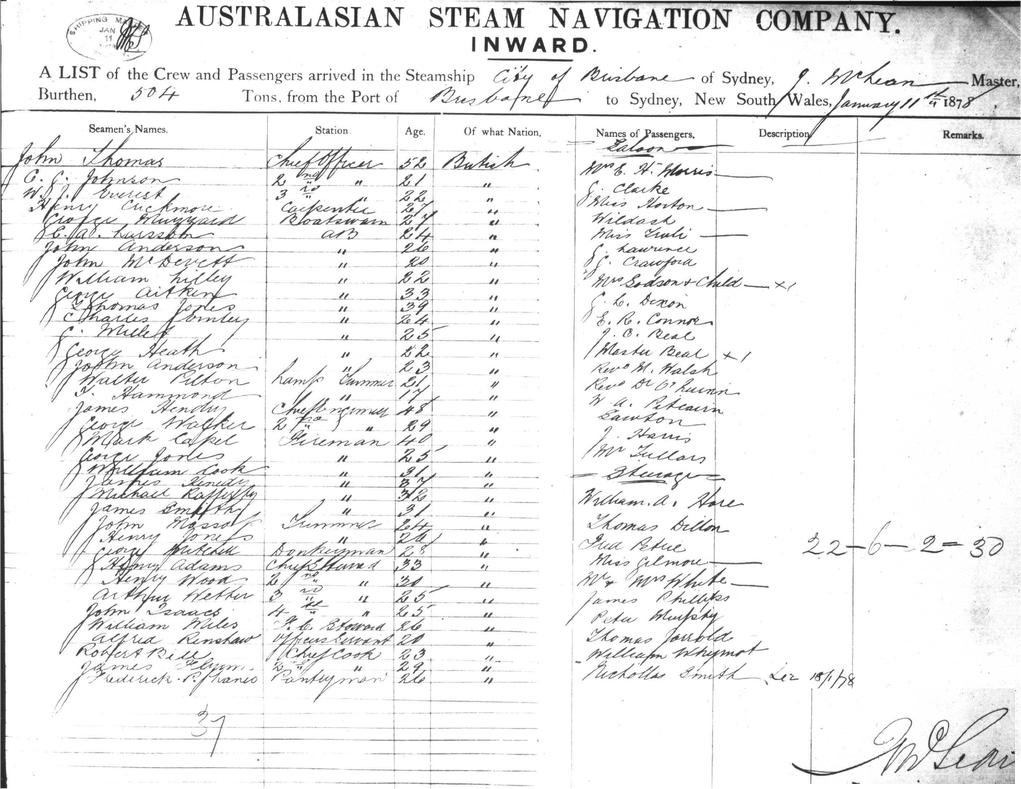 SHIPPING MA
JAN
11
AUSTRALASIAN STEAM NAVIGATION COMPANY.
INWARD.
A LIST of the Crew and Passengers arrived in the Steamship City of Brisbane of Sydney, J. McLean Master,
Burthen, 504 Tons, from the Port of Brisbane to Sydney, New South Wales, January 11th 1878
Seamen's Names. Station. Age. Of what Nation. Names of Passengers, Description Remarks.
Saloon
John Thomas Chief Officer 52 British Mrs E. H. Morris
C. C. Johnson 2nd " 21 " G. Clarke
W. J. Everest 3rd " 22 " Miss Horton
Henry Carpenter 27 " Wildash
George Boatswain 27 " Miss
E. A. AB 24 " Lawrence
John Anderson " 26 " Crawford
John McDevett " 20 " Mrs Dodson & Child x1
William Lilley " 22 " Dixon
George Aitken " 33 " E. R. Connor
Thomas Jones " 39 " J. C. Beal
Charles " 24 " Master Beal x1
C. Miller " 25 " Revd W. Walsh
George Heath " 22 " Revd Dr O'Quinn
John Anderson " 23 " W. A. Pitcairn
Walter Pilton Lamp Trimmer 21 " Lawton
T. Hammond " 17 " J. Harris
James Hendry Chief Engineer 48 " Mr Fullars
George Walker 2nd " 29 "
Mark Capel Fireman 40 "
George Jones " 25 "
Steerage
William Cook " 31 " William A. Hore
James Kenedy " 37 " Thomas Dillon
Michael Rafferty " 32 " Fred Petrie
James Smyth " 31 " Miss Gilmore
John Trimmer 24 " Mr & Mrs White
Henry Jones " 26 " James Phillips
George Mitchell Donkeyman 28 " Peter Murphy
Henry Adams Chief Steward 33 " Thomas Jarrold
Henry Wood 2nd " 30 " William Whymot
Arthur Wetter 3rd " 25 " Nichollas Smith
John Isaacs 4th " 25 "
William Wiles F. C. Steward 26 "
Alfred Renshaw Officers Servant 20 "
Robert Bell Chief Cook 23 "
James Flynn 2nd " 29 "
Frederick Pantryman 26 "
22-6-2=30
18/1/78
37
J McLean